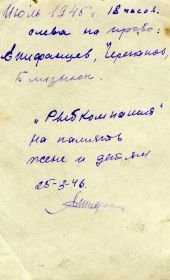 Июль 1945 г. 18 часов.
слева на право:
Епифанцев, Черепанов,
Близнюк.
„Рыбкомпания"
на память
жене и детям
25-3-46.